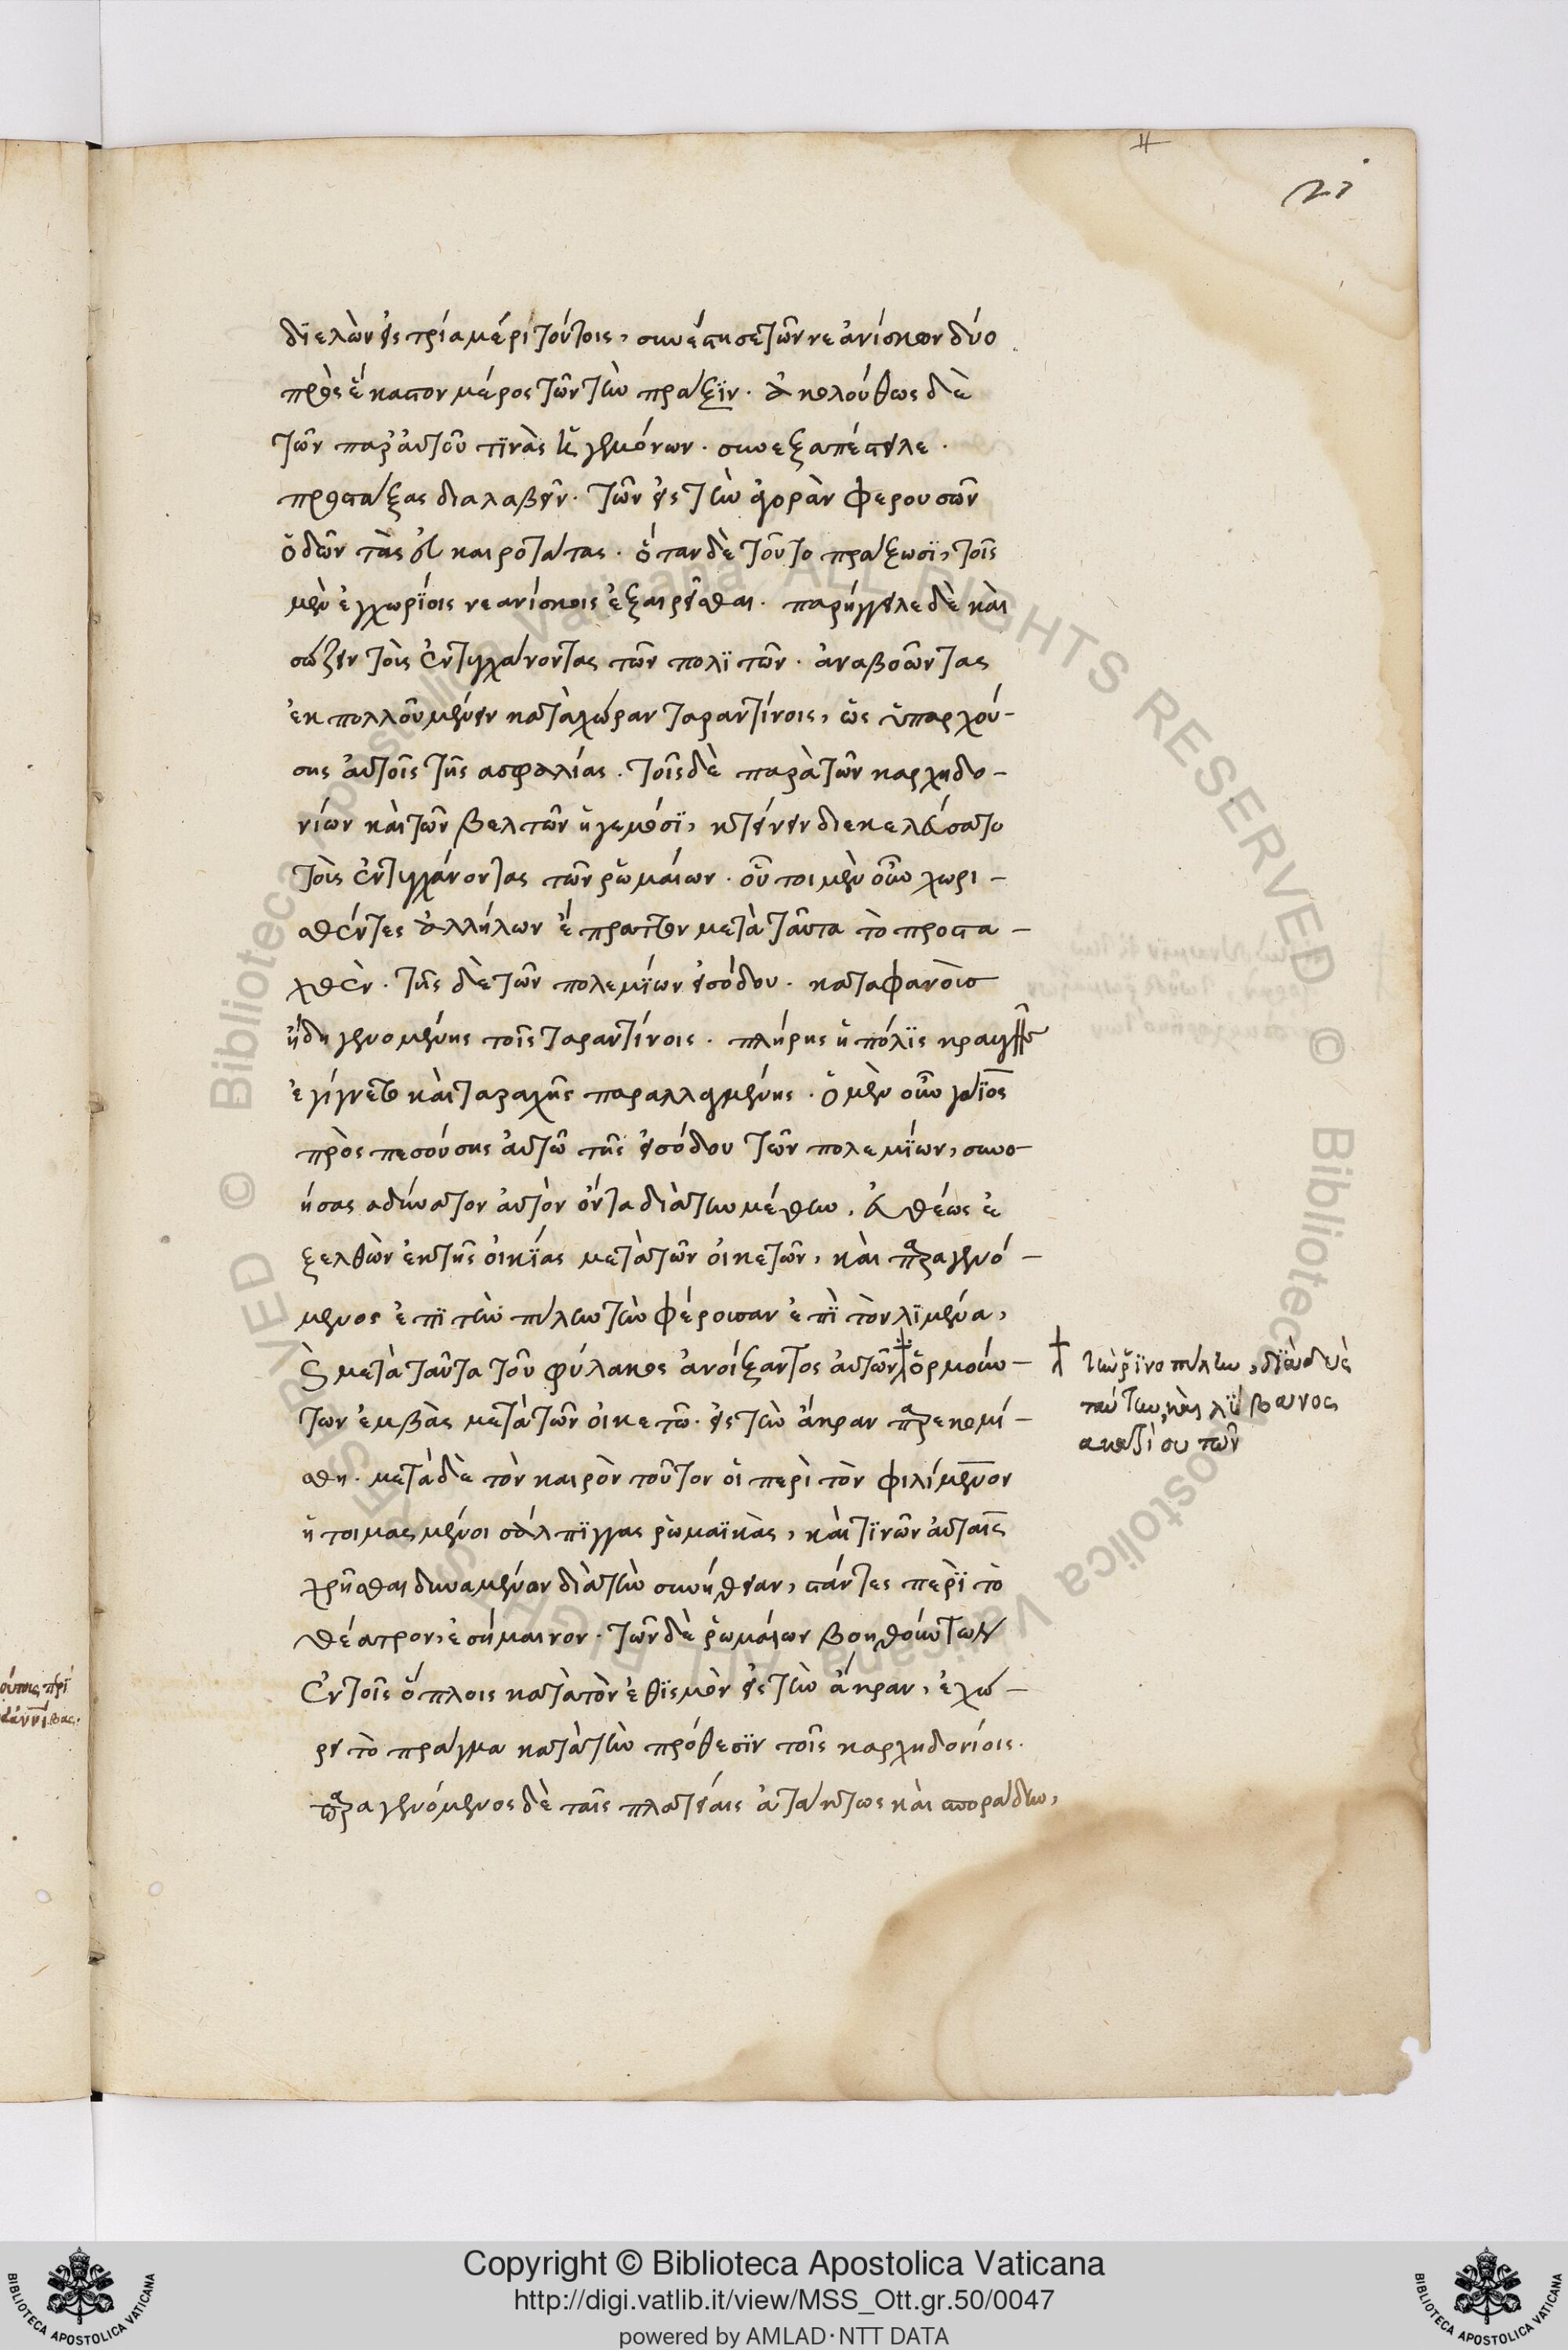 21
διελὼν εἰς τρία μέρη τούτους, συνέστησε τῶν νεανίσκων δύο
πρὸς ἕκαστον μέρος τῶν τὴν πράξϊν. ἀκολούθως δὲ
τῶν παρ' αὐτοῦ τϊνὰς ἡγεμόνων. συνεξαπέστειλε.
προστάξας διαλαβεῖν. τῶν εἰς τὴν ἀγορὰν φερουσῶν
ὁδῶν τὰς εὐκαιροτάτας. ὅταν δὲ τοῦτο πράξωσϊ, τοῖς
μὲν ἐγχωρίοις νεανίσκοις ἐξαιρεῖσθαι. παρήγγειλε δὲ καὶ
σώζειν τοὺς ἐντυγχάνοντας τῶν πολϊτῶν. ἀναβοῶντας
ἐκ πολλοῦ μένειν κατὰ χώραν ταραντίνους, ὡς ὑπαρχού-
σης αὐτοῖς τῆς ασφαλείας. τοῖς δὲ παρὰ τῶν καρχηδο-
νίων καὶ τῶν βελτῶν ἡγεμόσϊ, κτείνειν διεκελεύσατο
τοὺς ἐντυγχάνοντας τῶν ῥωμαίων. οὗτοι μὲν οὖν χωρι-
σθέντες ἀλλήλων ἔπραττον μετὰ ταῦτα τὸ προστα-
χθὲν. τῆς δὲ τῶν πολεμϊων εἰσόδου. καταφανοῦσ
ἤδη γενομένης τοῖς ταραντίνοις. πλήρης ἡ πόλϊς κραυγῆς
ἐγίγνετο καὶ ταραχῆς παρηλλαγμένης. ὁ μὲν οὖν γάϊος
πρὸς πεσούσης αὐτῶ τῆς εἰσόδου τῶν πολεμϊων, συννο-
ήσας αδύνατον αὐτὸν ὄντα διὰ τὴν μέθην, εὐθέως ἐ
ξελθὼν ἐκ τῆς οἰκϊας μετὰ τῶν οἰκετῶν, καὶ παραγενό-
μενος ἐπϊ τὴν πύλην τὴν φέρουσαν ἐπϊ τὸν λϊμένα,
καὶ μετὰ ταῦτα τοῦ φύλακος ἀνοίξαντος αὐτῶν ὁρμούν-
των ἐμβὰς μετὰ τῶν οἰκετῶν. εἰς τὴν ἄκραν παρεκομί-
σθη. μετὰ δὲ τὸν καιρὸν τοῦτον οἱ περὶ τὸν φιλίμενον
ἡτοιμασμένοι σάλπϊγγας ῥωμαϊκὰς, καί τϊνῶν αὐταῖς
χρῆσθαι δυναμένων διὰ τὴν συνήθειαν, στάντες περὶ τὸ
θέατρον, ἐσήμαινον. τῶν δὲ ῥωμαίων βοηθούντων
ἐν τοῖς ὅπλοις κατὰ τὸν ἐθϊσμὸν εἰς τὴν ἄκραν, ἐχώ-
ρει τὸ πρᾶγμα κατὰ τὴν πρόθεσϊν τοῖς καρχηδονίοις.
παραγενόμενος δὲ ταῖς πλατείαις ἀτάκτως καὶ σποράδην,
τὴν ῥϊνοπύλην, διαδὺς
ταύτην, καὶ λϊβανος
ακατίου τῶν
Copyright © Biblioteca Apostolica Vaticana
http://digi.vatlib.it/view/MSS_Ott.gr.50/0047
powered by AMLAD·NTT DATA